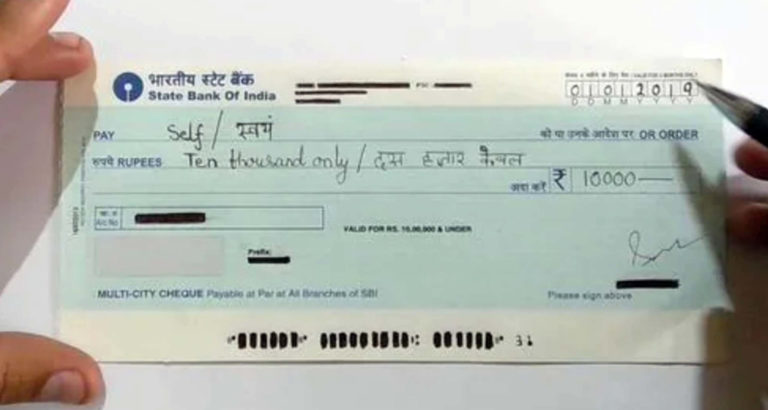 भारतीय स्टेट बैंक
State Bank Of India
01012019
D D M M Y Y Y Y
PAY Self / स्वयं को या उनके आदेश पर OR ORDER
रुपये RUPEES Ten thousand only / दस हजार केवल
अदा करें ₹ 10000
खा. सं.
A/c No.
VALID FOR RS. 10,00,000 & UNDER
Prefix:
MULTI-CITY CHEQUE Payable at Par at All Branches of SBI
Please sign above
31